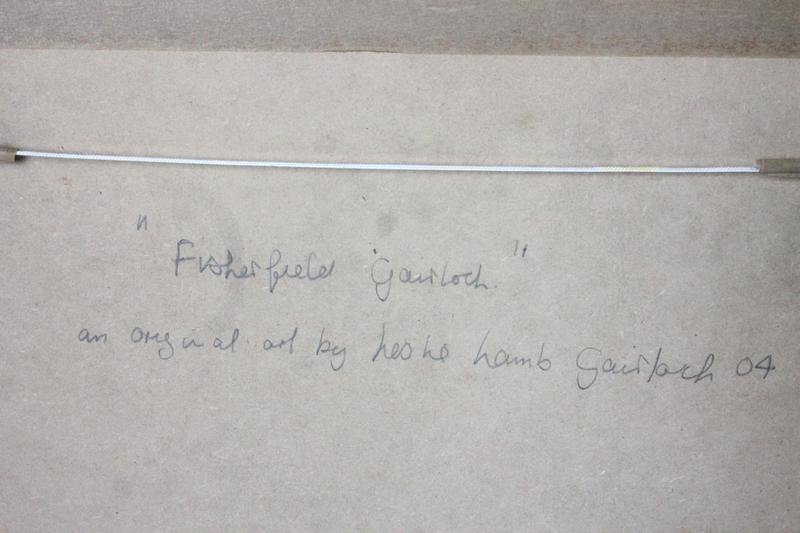 " Fisherfield Gairloch. "
an original oil by Leslie Lamb Gairloch 04